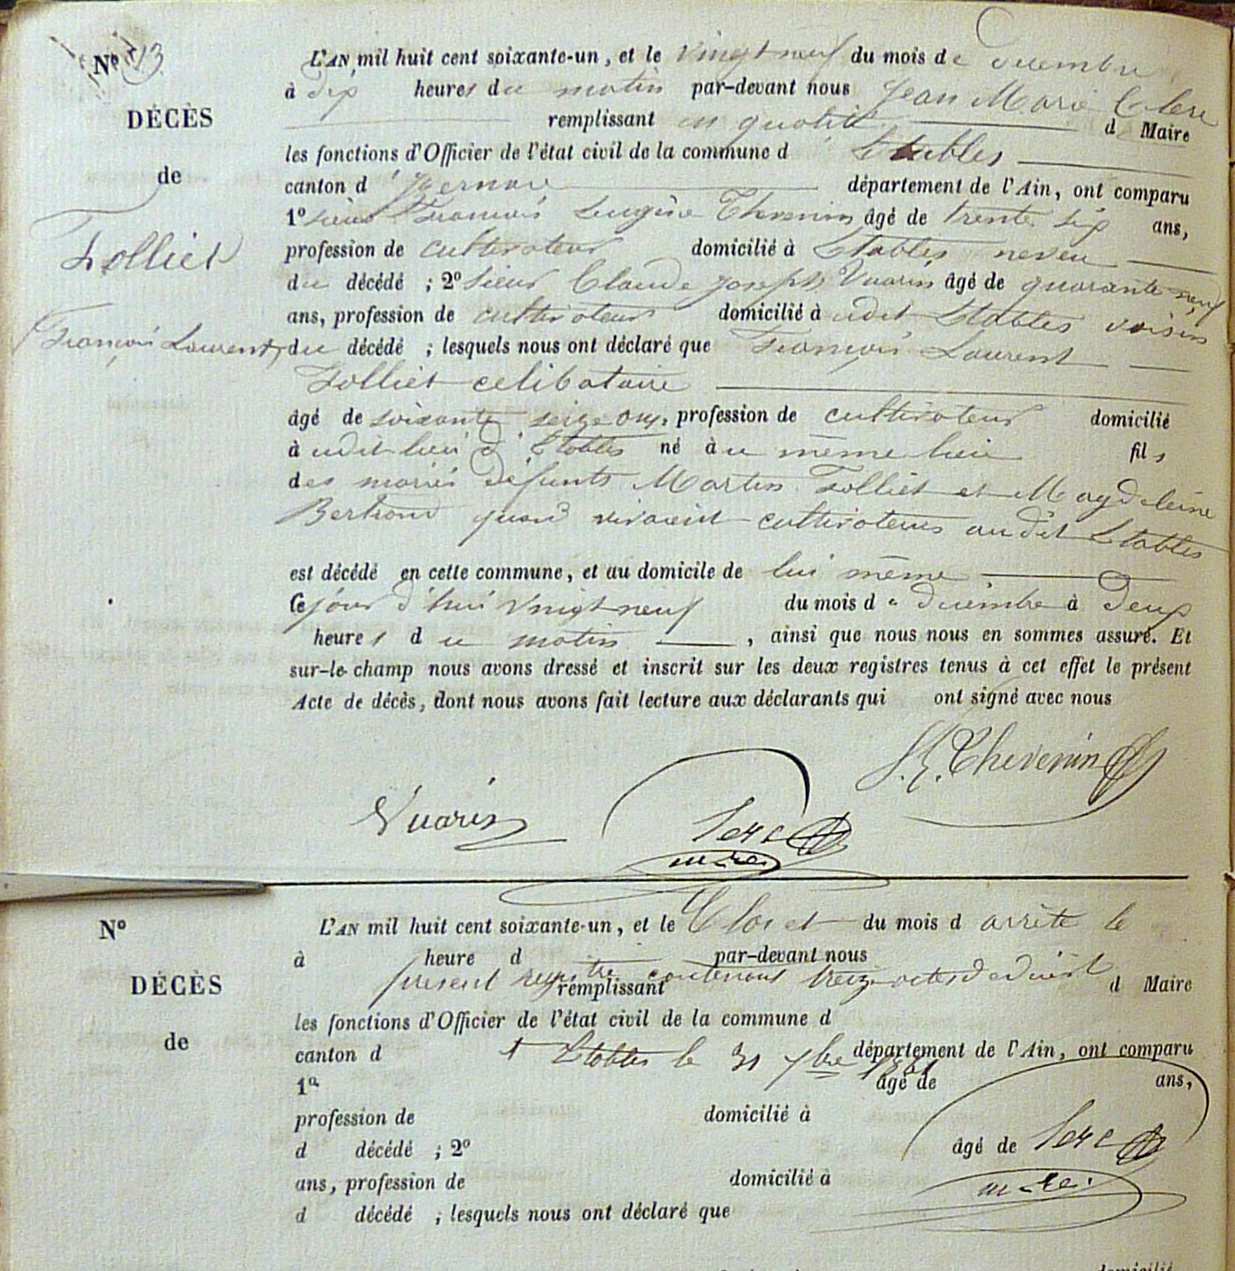 Nº 13
DÉCÈS
de
Folliet
François Laurent,
L'AN mil huit cent soixante-un, et le vingt neuf du mois de décembre
à dix heures du matin par-devant nous Jean Marie Clerc
remplissant en qualité d Maire
les fonctions d'Officier de l'état civil de la commune d' Etables
canton d' département de l'Ain, ont comparu
1º sieur François Eugène Thevenin âgé de trente six ans,
profession de cultivateur domicilié à Etables neveu
du décédé ; 2º sieur Claude Joseph Vuarin âgé de quarante neuf
ans, profession de cultivateur domicilié à udit Etables voisin
du décédé ; lesquels nous ont déclaré que François Laurent
Folliet celibataire
âgé de soixante seize ans, profession de cultivateur domicilié
à udit lieu d'Etables né à u même lieu fils
des mariés défunts Martin Folliet et Magdeleine
Bertrand quand vivaient cultivateurs audit Etables
est décédé en cette commune, et au domicile de lui même
Ce jour d'hui vingt neuf du mois de décembre à deux
heures du matin , ainsi que nous nous en sommes assuré. Et
sur-le-champ nous avons dressé et inscrit sur les deux registres tenus à cet effet le présent
Acte de décès, dont nous avons fait lecture aux déclarants qui ont signé avec nous
F. E. Thevenin
Vuarin
Clerc
maire
Nº
DÉCÈS
de
L'AN mil huit cent soixante-un, et le Clos et du mois d arrête le
à heure d par-devant nous
présent registre contenant treize actes de décès
remplissant d Maire
les fonctions d'Officier de l'état civil de la commune d
canton d à Etables le 31 département de l'Ain, ont comparu
1º âgé de ans,
profession de domicilié à
d décédé ; 2º âgé de Clerc
ans, profession de domicilié à maire
d décédé ; lesquels nous ont déclaré que
domicilié